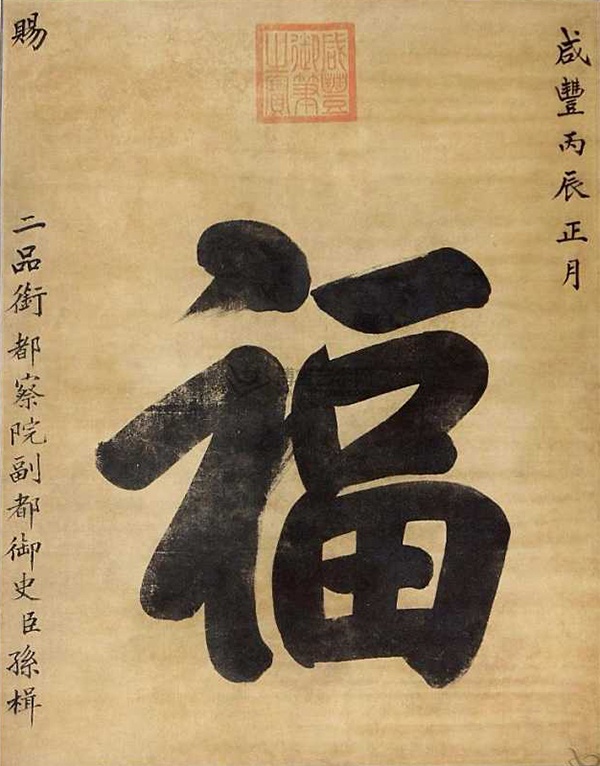 咸豐丙辰正月
咸豐御筆之寶
福
賜
二品銜都察院副都御史臣孫楫